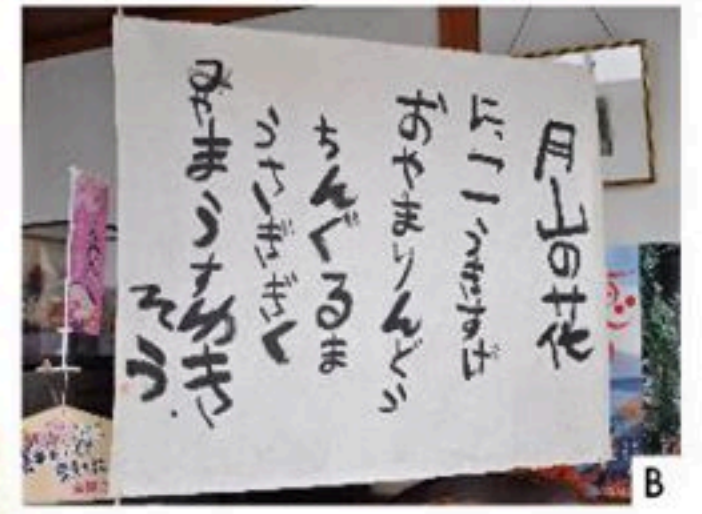 月山の花
にっこうきすげ
おやまりんどう
ちんぐるま
うさぎぎく
みやまうすゆき
そう.
B